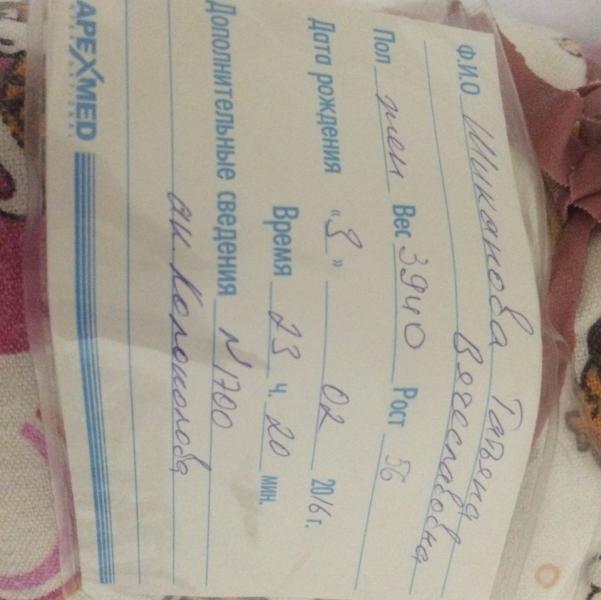 Ф.И.О Шиканова Татьяна
Вячеславовна
Пол жен Вес 3940 Рост 56
Дата рождения "9" 02 2016 г.
Время 23 ч. 20 мин.
Дополнительные сведения №1700
ак. Колоколова
APEXMED
INTERNATIONAL